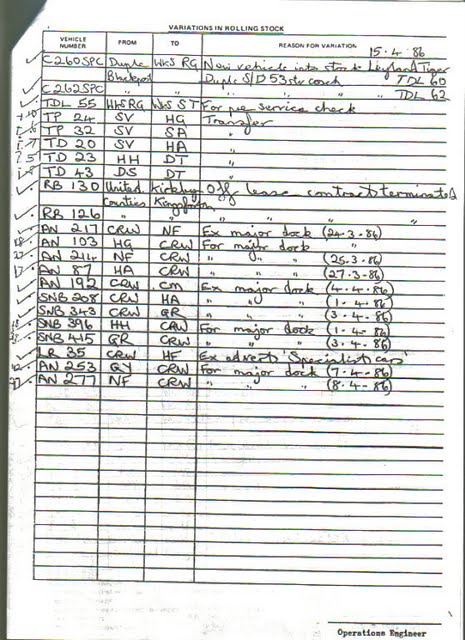 VARIATIONS IN ROLLING STOCK
VEHICLE NUMBER FROM TO REASON FOR VARIATION 15.4.86
C260SPC Duple WKS RG New vehicle into stock Leyland Tiger
Blackpool Duple S/D 53str coach TDL 60
C262SPC " " " " TDL 62
TDL 55 WKS RG WKS ST For pre service check
TP 24 SV HG Transfer
TP 32 SV SA "
TD 20 SV HA "
TD 23 HH DT "
TD 43 DS DT "
RB 130 United Kirkby Off lease contract terminated
Counties
RB 126 " " " " " "
AN 217 CRW NF Ex major dock (24.3.86)
AN 103 HG CRW For major dock "
AN 244 NF CRW " " (25.3.86)
AN 87 HA CRW " " (27.3.86)
AN 192 CRW CM Ex major dock (4.4.86)
SNB 208 CRW HA " " (1.4.86)
SNB 343 CRW GR " " (3.4.86)
SNB 396 HH CRW For major dock (1.4.86)
SNB 415 GR CRW " " (3.4.86)
LR 35 CRW HF Ex advert 'Specialist cars'
AN 253 GY CRW For major dock (7.4.86)
AN 277 NF CRW " " (8.4.86)
Operations Engineer